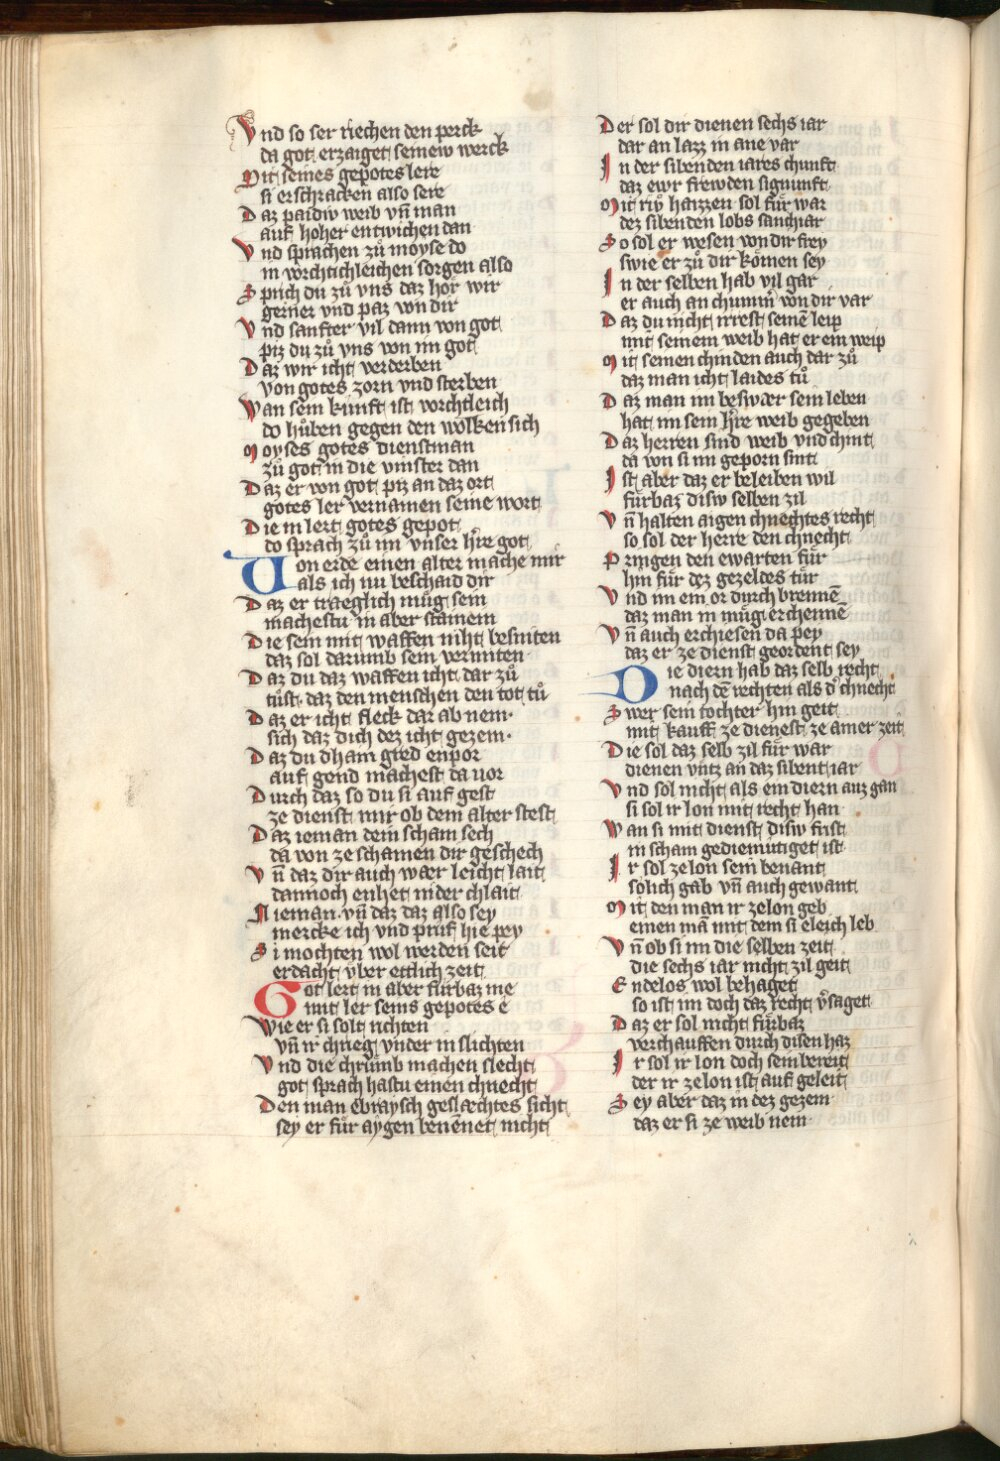 Vnd so ser riechen den perck
da got erzaiget seinew werck
Mit seines gepotes lere
si erschracken also sere
Daz paidiv weib vn̄ man
auf hoher entwichen dan
Vnd sprachen zuͦ moyse do
in vorchtichleichen sorgen also
Sprich du zuͦ vns daz hor wir
gerner vnd paz von dir
Vnd sanfter vil dann von got
piz du zuͦ vns von im got
Daz wir icht verderben
von gotes zorn vnd sterben
Wan sein kunft ist vorchtleich
do huͦben gegen den wolken sich
Moyses gotes dienstman
zuͦ got in die vinster dan
Daz er von got piz an daz ort
gotes ler vernamen seine wort
Die in lert gotes gepot
do sprach zuͦ im vnser hr̄e got
Von erde einen alter mache mir
als ich nu beschaid dir
Daz er traeglich muͤg sein
machestu in aber stainein
Die sein mit waffen niht besniten
daz sol darumb sein vermiten
Daz du daz waffen icht dar zuͦ
tuͦst daz den menschen den tot tuͦ
Daz er icht fleck dar ab nem
sich daz dich dez icht gezem
Daz du dham gred enpor
auf gend machest da vor
Durch daz so du si auf gest
ze dienst mir ob dem alter stest
Daz ieman dein scham sech
da von ze schamen dir geschech
Vn̄ daz dir auch waer leicht lait
dannoch enhet nider chlait
Nieman vn̄ daz daz also sey
mercke ich vnd pruͤf hie pey
Si mochten wol werden seit
erdacht vber ettlich zeit
Got lert in aber fuͤrbaz me
mit ler seins gepotes e
Wie er si solt richten
vn̄ ir chrieg vnder in slichten
Vnd die chruͤmb machen slecht
got sprach hastu einen chnecht
Den man ebraysch geslaechtes sicht
sey er fuͤr aygen benennet nicht
Der sol dir dienen sechs iar
dar an lazz in ane var
In der sibenden iares chunft
daz ewr frewden signunft
Mit riv haizzen sol fuͤr war
dez sibenden lobs sanchiar
So sol er wesen von dir frey
swie er zuͦ dir koͤmen sey
In der selben hab vil gar
er auch an chumm̄ von dir var
Daz du nicht irrest seinē leip
mit seinem weib hat er ein weip
Mit seinen chinden auch dar zuͦ
daz man icht laides tuͦ
Daz man im beswaer sein leben
hat im sein hr̄re weib gegeben
Daz herren sind weib vnd chint
da von si im geporn sint
Ist aber daz er beleiben wil
fuͤrbaz disiv selben zil
Vn̄ halten aigen chnechtes recht
so sol der herre den chnecht
Pringen den ewarten fuͤr
hin fuͤr dez gezeldes tuͤr
Vnd im ein or durch brennē
daz man in muͤg erchennē
Vn̄ auch erchiesen da pey
daz er ze dienst geordent sey
Die diern hab daz selb recht
nach dē rechten als d' chnecht
Swer sein tochter hin geit
mit kauff ze dienest ze ainer zeit
Die sol daz selb zil fuͤr war
dienen vntz an daz sibent iar
Vnd sol nicht als ein diern auz gan
si sol ir lon mit recht han
Wan si mit dienst disiv frist
in scham gediemutiget ist
Ir sol ze lon sein benant
solich gab vn̄ auch gewant
Mit den man ir ze lon geb
einen mā mit dem si eleich leb
Vn̄ ob si im die selben zeit
die sechs iar nicht zil geit
Endelos wol behaget
so ist im doch daz recht v'saget
Daz er sol nicht fuͤrbaz
verchauffen durch disen haz
Ir sol ir lon doch sein bereit
der ir ze lon ist auf geleit
Sey aber daz in dez gezem
daz er si ze weib nem